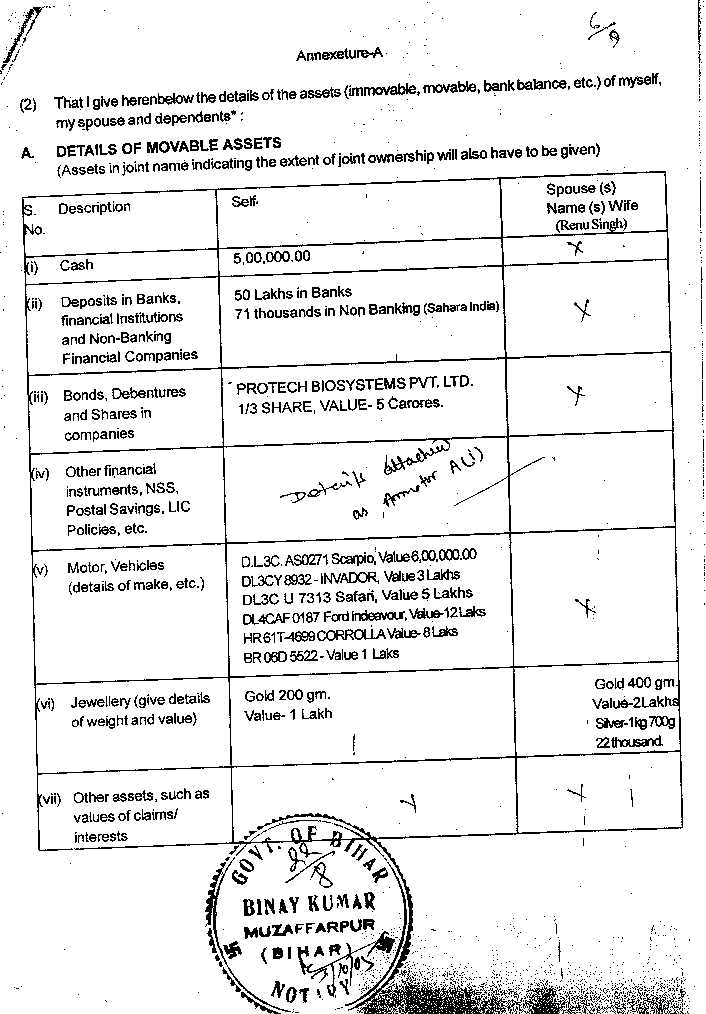 6/9
Annexeture-A
(2) That I give herenbelow the details of the assets (immovable, movable, bank balance, etc.) of myself,
my spouse and dependents* :
A. DETAILS OF MOVABLE ASSETS
(Assets in joint name indicating the extent of joint ownership will also have to be given)
S. No. Description Self Spouse (s)
Name (s) Wife
(Renu Singh)
(i) Cash 5,00,000.00 X
(ii) Deposits in Banks, 50 Lakhs in Banks
financial Institutions 71 thousands in Non Banking (Sahara India) X
and Non-Banking
Financial Companies
(iii) Bonds, Debentures PROTECH BIOSYSTEMS PVT. LTD. X
and Shares in 1/3 SHARE, VALUE- 5 Carores.
companies
(iv) Other financial Details attached
instruments, NSS, as A(1)
Postal Savings, LIC
Policies, etc.
(v) Motor, Vehicles D.L.3C. AS0271 Scarpio, Value 6,00,000.00
(details of make, etc.) DL3CY 8932 - INVADOR, Value 3 Lakhs
DL3C U 7313 Safari, Value 5 Lakhs X
DL4CAF 0187 Ford indeavour, Value-12 Laks
HR 61T-4699 CORROLLA Value- 8 Laks
BR 06D 5522 - Value 1 Laks
(vi) Jewellery (give details Gold 200 gm. Gold 400 gm.
of weight and value) Value- 1 Lakh Value-2Lakhs
Silver-1kg 700g
22 thousand.
(vii) Other assets, such as X X
values of claims/
interests
GOVT. OF BIHAR
22/8
BINAY KUMAR
MUZAFFARPUR
(BIHAR)
NOTARY